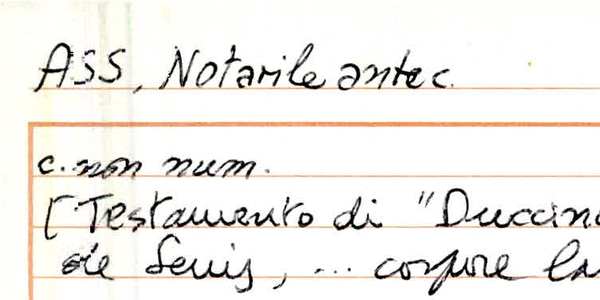 ASS, Notarile antec.
c. non num.
[Testamento di "Duccino
de Senis, ... corpore la